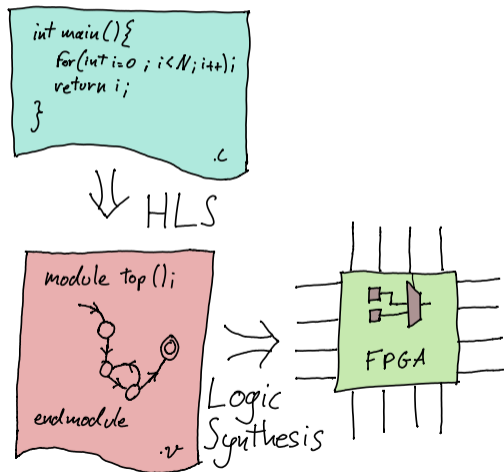 int main(){
for(int i=0 ; i<N; i++);
return i;
}
.c
HLS
module top();
endmodule
.v
Logic
Synthesis
FPGA